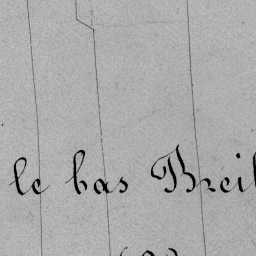 le bas Breil